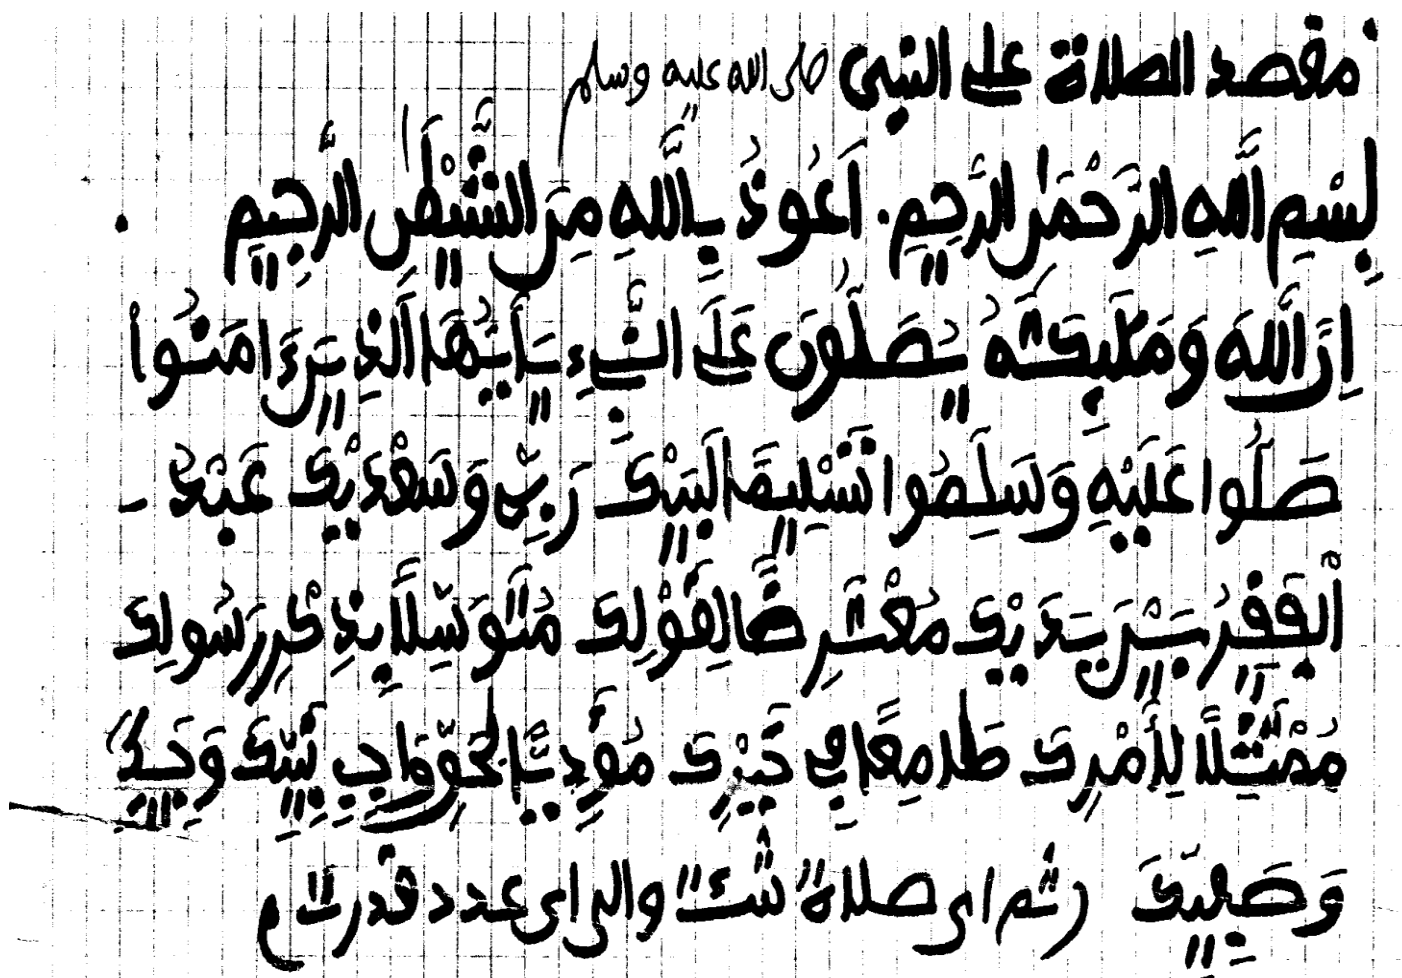 مقصد الصلاة على النبي صلى الله عليه وسلم
بِسْمِ اللَّهِ الرَّحْمَٰنِ الرَّحِيمِ. أَعُوذُ بِاللَّهِ مِنَ الشَّيْطَٰنِ الرَّجِيمِ.
إِنَّ اللَّهَ وَمَلَٰٓئِكَتَهُ يُصَلُّونَ عَلَى النَّبِيءِ يَٰٓأَيُّهَا الَّذِينَ ءَامَنُوا
صَلُّوا عَلَيْهِ وَسَلِّمُوا تَسْلِيمًا لَبَّيْكَ رَبِّي وَسَعْدَيْكَ عَبْدُكَ
الْفَقِيرُ بَيْنَ يَدَيْكَ مُعْتَرِضًا لِقَوْلِكَ مُتَوَسِّلًا بِذِكْرِ رَسُولِكَ
مُمْتَثِلًا لِأَمْرِكَ طَامِعًا فِي خَيْرِكَ مُؤَدِّيًا لِحَقِّ وَاجِبِ نَبِيِّكَ وَحَبِيبِكَ
وَصَفِيِّكَ (ثم اي صلاة شئت والى اي عدد قدرت)